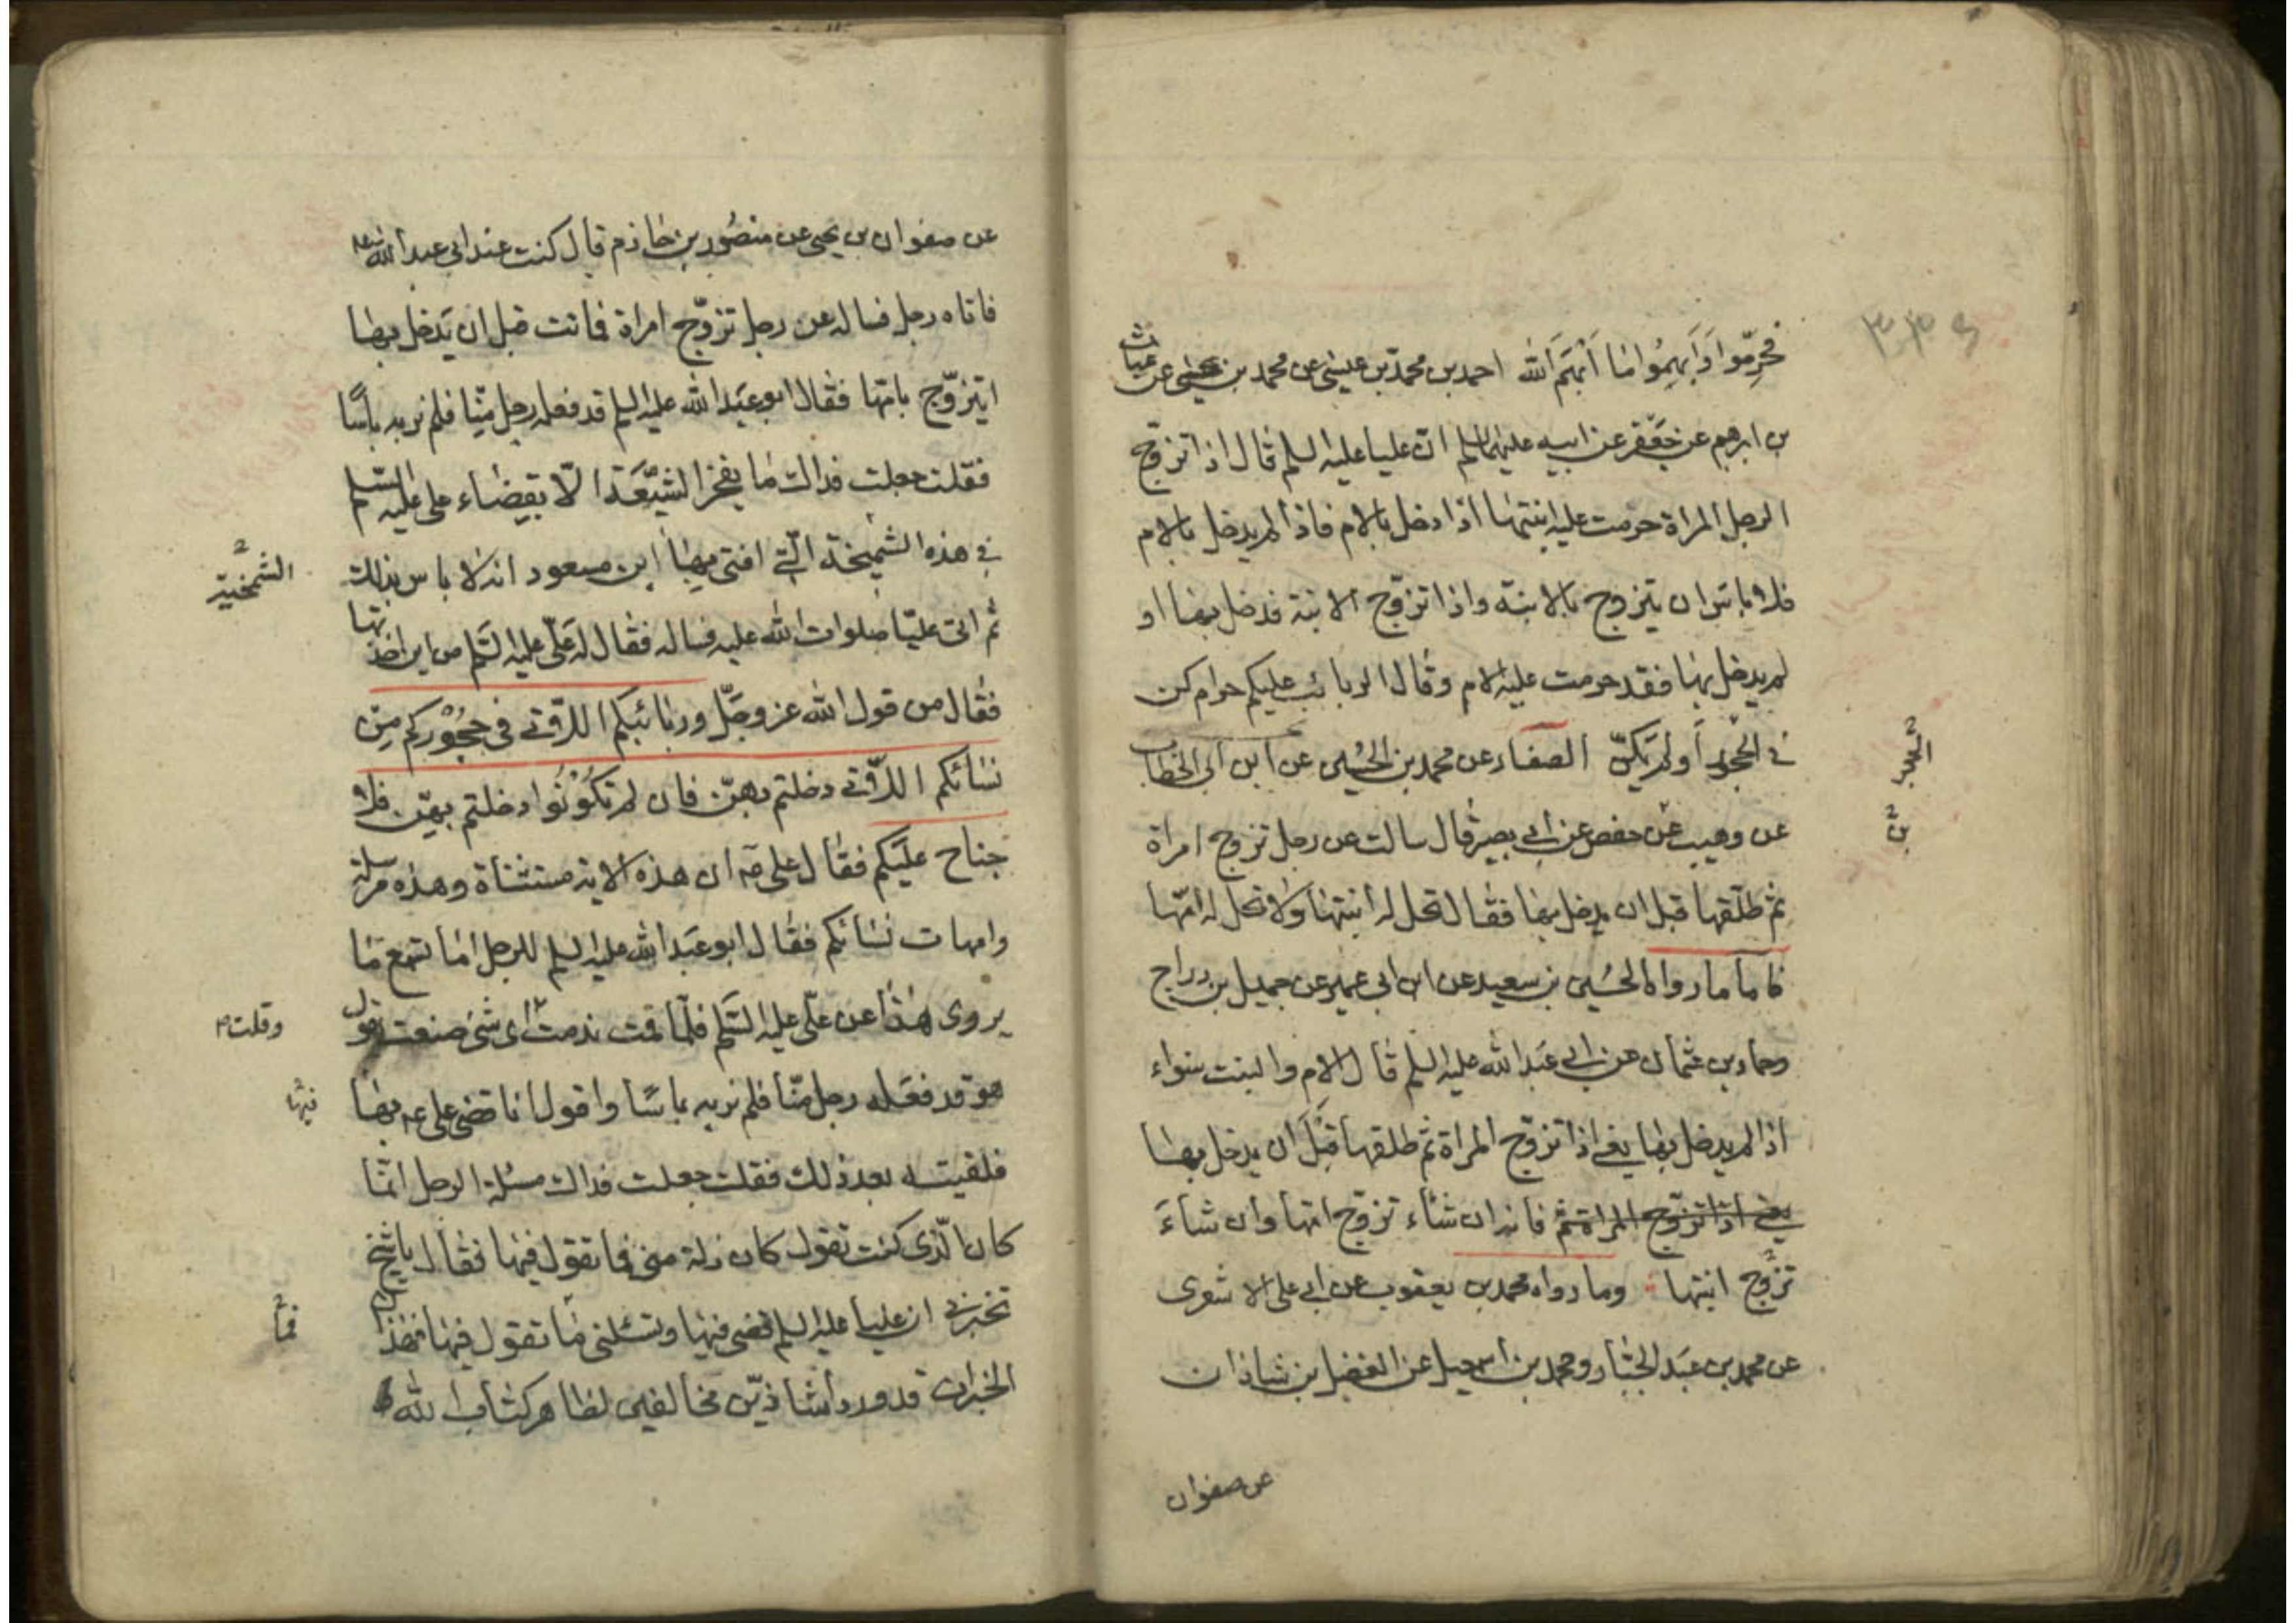 ٣٣٤
فحرّموا وَابهِمُوا ما اَبْهَمَ الله احمد بن محمّد بن عيسى عن محمد بن يحيى عن غياث
بن ابرهيم عن جعفر عن ابيه عليهما السلم انّ عليا عليه السلم قال اذا تزوّج
الرجل المراة حرمت عليه ابنتها اذا دخل بالام فاذا لم يدخل بالام
فلا باس ان يتزوج بالابنة واذا تزوّج الابنة فدخل بها او
لم يدخل بها فقد حرمت عليه الام وقال الربائب عليكم حرام كن
في الحجر او لم يكنّ الصفار عن محمد بن الحسين عن ابن ابى الخطاب
عن وهيب عن حفص عن ابى بصير قال سالت عن رجل تزوج امراة
بن
ثم طلّقها قبل ان يدخل بها فقال تحل له ابنتها ولا تحل له امّها
فاما ما رواه الحسين بن سعيد عن ابن ابى عمير عن جميل بن دراج
وحماد بن عثمان عن ابى عبد الله عليه السلم قال الام والبنت سواء
اذا لم يدخل بها يعني اذا تزوّج المراة ثم طلقها قبل ان يدخل بها
يعني اذا تزوّج المراة ثم فانه ان شاء تزوّج امّها وان شاءَ
تزوّج ابنتها وما رواه محمد بن يعقوب عن ابى على الاشعرى
عن محمد بن عبد الجبّار ومحمد بن اسمعيل عن الفضل بن شاذان
عن صفوان
عن صفوان بن يحيى عن منصُور بن حازم قال كنت عند ابى عبد الله ع
فاتاه رجل فساله عن رجل تزوّج امراة فماتت قبل ان يَدخل بها
ايتزوّج بامّها فقال ابو عبد الله عليه السلم قد فعله رجل منّا فلم نر به باسًا
فقلت جعلت فداك ما يفخر الشيعَة الّا بقضاء علي عليه السّلم
في هذه الشميخة الّتي افتى بها ابن مسعود انه لا باس بذلك
الشمخية
ثم اتى عليّا صلوات الله عليه فساله فقال له عَلّى عليه السّلم من اين اخذتها
فقال من قول الله عز وجَلّ وربائبكم اللاّتي فى حجُوركم مِن
نسائكم اللاّتي دخلتم بهنّ فان لم تكُونُوا دخلتم بهنّ فلا
جناح عليكم فقال على ع ان هذه الاية مستثناة وهذه مرسلة
وامهات نسائكم فقال ابو عبد الله عليه السلم للرجل اما تسمع ما
يروى هذا عن علّى عليه السّلم فلمّا قمت ندمت اى شئ صنعت يقول
وقلت
هو قد فعَله رجل منّا فلم نر به باسًا واقول انا قضى على ع بها
فيها
فلقيته بعد ذلك فقلت جعلت فداك مسئلة الرجل انّما
كان الّذى كنت تقول كان زلة منى فما تقول فيها فقال يا شيخ
تخبرني ان عليا عليه السلم قضى فيها وتسئلنى ما تقول فيها فهذان
فما
الخبران قد وردا شاذّين مخالفين لظاهر كتاب الله